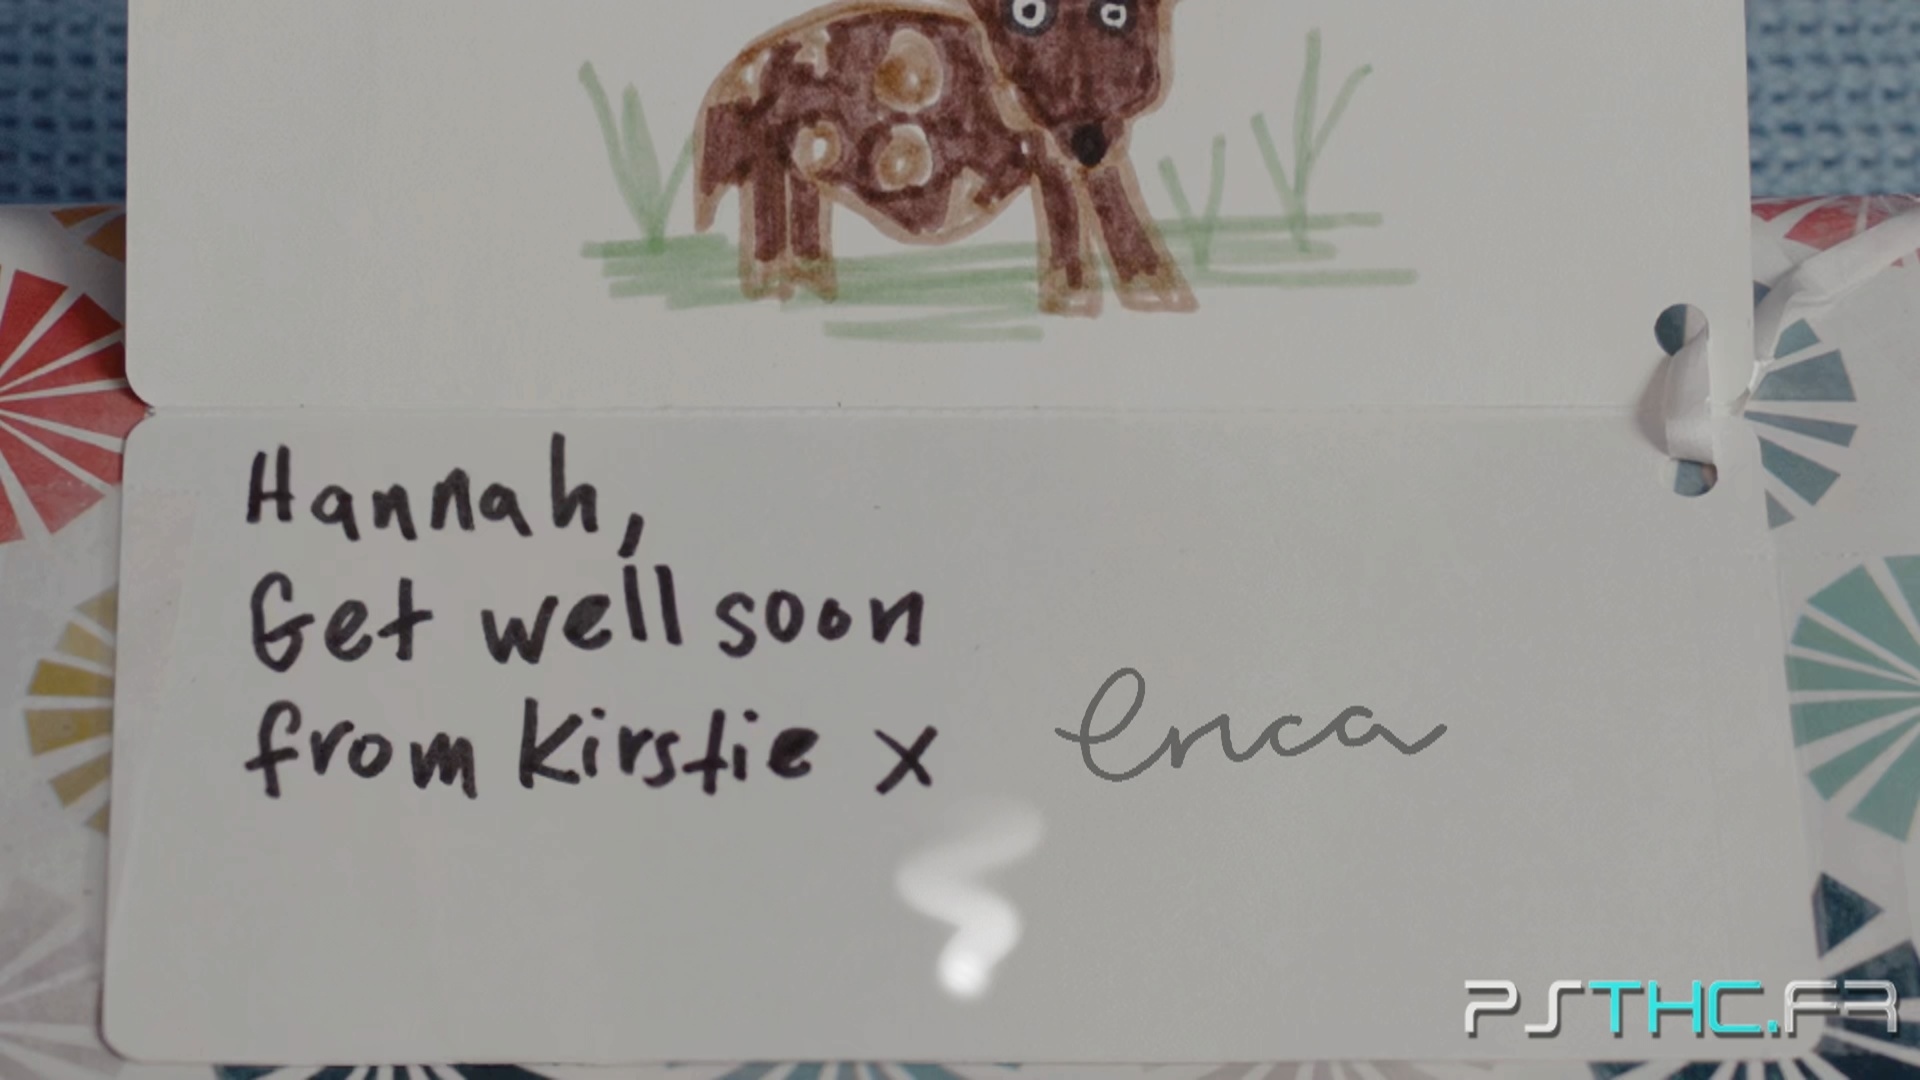 Hannah,
Get well soon
from Kirstie x
erica
PSTHC.FR